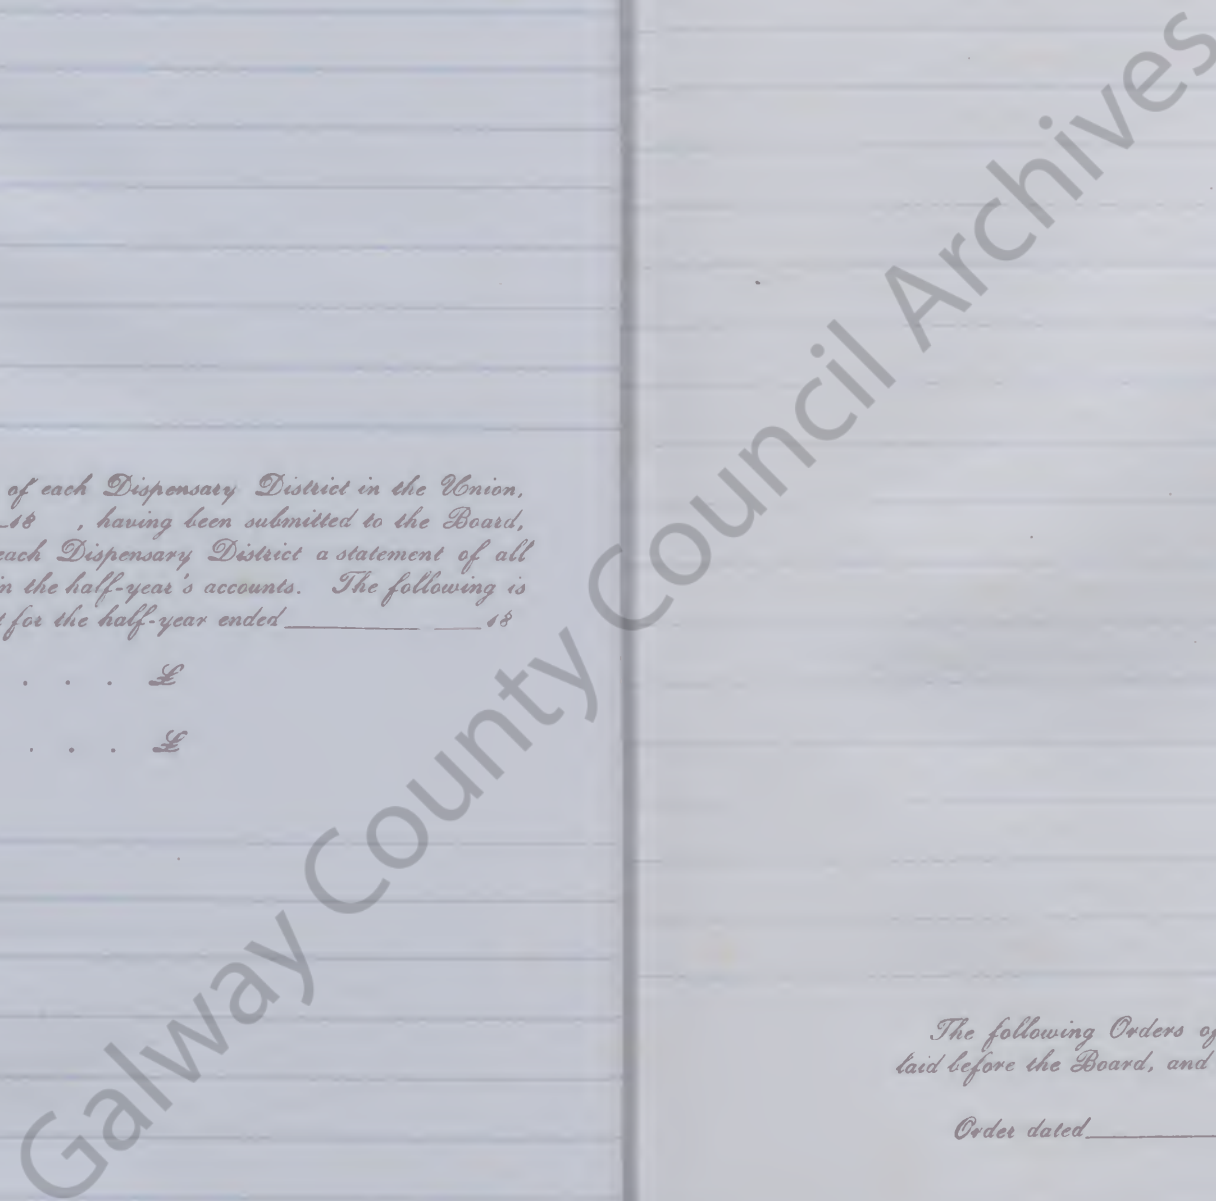 of each Dispensary District in the Union,
18 , having been submitted to the Board,
each Dispensary District a statement of all
n the half-year's accounts. The following is
t for the half-year ended 18
. . . £
. . . £
The following Orders of
laid before the Board, and
Order dated
Galway County Council Archives